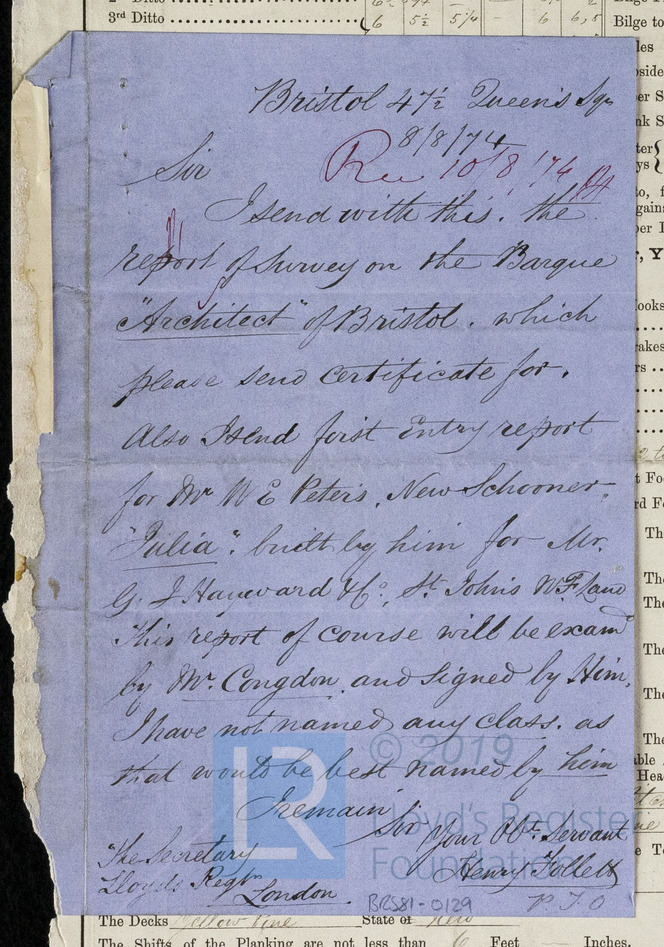 3rd Ditto
6 5½ 5¼ - 6 6,5
Bilge to
Bristol 47½ Queen's Sqr
8/8/74
Sir Re 10/8/74
I send with this. the
report of Survey on the Barque
"Architect" of Bristol. which
please send certificate for.
Also I send first Entry report
for Mr W E Peters, New Schooner
"Julia". built by him for Mr.
G. J Hayward & Co, St. Johns N.F.Land
This report of course will be examd
by Mr. Congdon and signed by Him,
I have not named any class. as
that would be best named by him
I remain Sir
Your Obt. Servant
Henry Follett
The Secretary
Lloyds Regtr
London.
BRS81-0129
P.T.O
LR © 2019
Lloyd's Register
Foundation
The Decks Yellow Pine State of New
The Shifts of the Planking are not less than 6 Feet Inches.